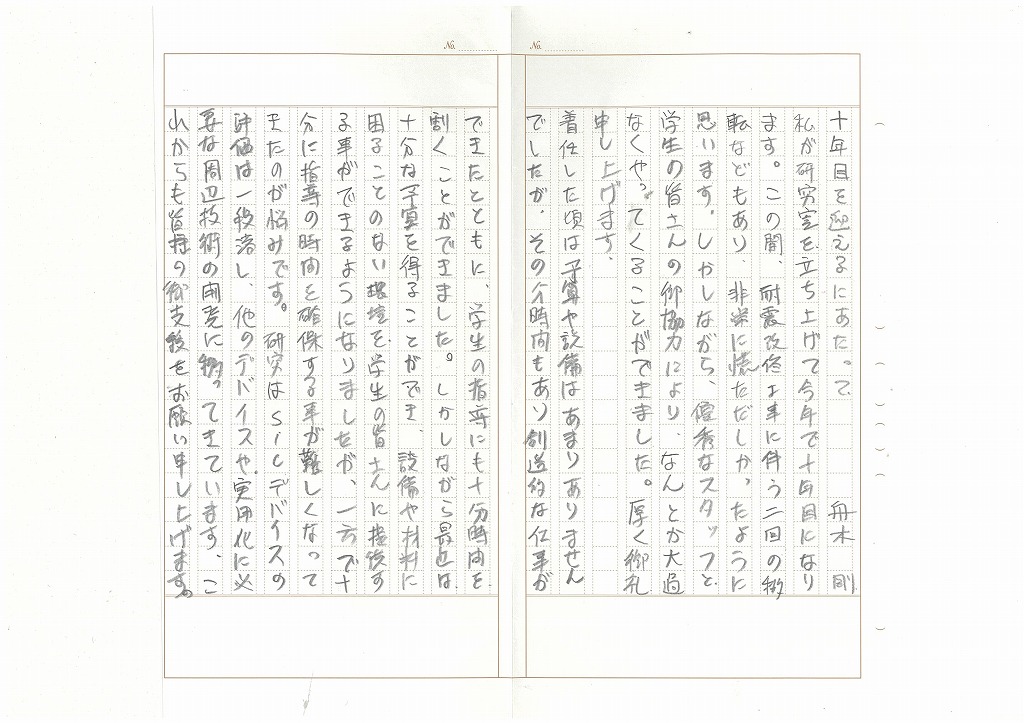 No.
No.
十年目を迎えるにあたって　舟木　剛
私が研究室を立ち上げて今年で十年目になり
ます。この間、耐震改修工事に伴う二回の移
転などもあり、非常に慌ただしかったように
思います。しかしながら、優秀なスタッフと
学生の皆さんの御協力により、なんとか大過
なくやってくることができました。厚く御礼
申し上げます。
着任した頃は予算や設備はあまりありません
でしたが、その分時間もあり創造的な仕事が
できたとともに、学生の指導にも十分時間を
割くことができました。しかしながら最近は
十分な予算を得ることができ、設備や材料に
困ることのない環境を学生の皆さんに提供す
る事ができるようになりましたが、一方で十
分に指導の時間を確保する事が難しくなって
きたのが悩みです。研究はSiCデバイスの
評価は一段落し、他のデバイスや実用化に必
要な周辺技術の開発に移ってきています。こ
れからも皆様の御支援をお願い申し上げます。